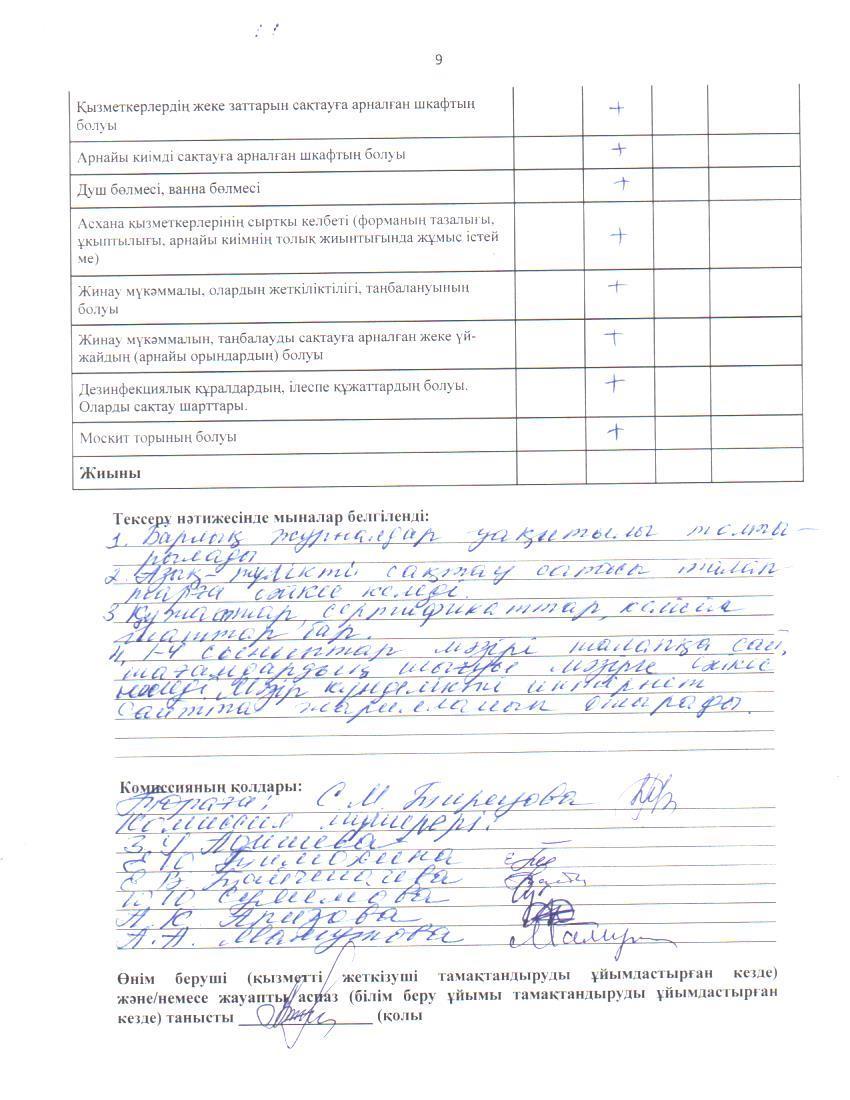 9
Қызметкерлердің жеке заттарын сақтауға арналған шкафтың
болуы
+
Арнайы киімді сақтауға арналған шкафтың болуы
+
Душ бөлмесі, ванна бөлмесі
+
Асхана қызметкерлерінің сыртқы келбеті (форманың тазалығы,
ұқыптылығы, арнайы киімнің толық жиынтығында жұмыс істей
ме)
+
Жинау мүкәммалы, олардың жеткіліктілігі, таңбалануының
болуы
+
Жинау мүкәммалын, таңбалауды сақтауға арналған жеке үй-
жайдың (арнайы орындардың) болуы
+
Дезинфекциялық құралдардың, ілеспе құжаттардың болуы.
Оларды сақтау шарттары.
+
Москит торының болуы
+
Жиыны
Тексеру нәтижесінде мыналар белгіленді:
1. Барлық журналдар уақытылы толты-
рылады
2. Азық-түлікті сақтау сапасы талап-
тарға сәйкес келеді.
3 Құжаттар, сертификаттар, келісім
шарттар бар.
4, 1-4 сыныптар мәзірі талапқа сай,
тағамдардың шығуы мәзірге сәйкес
келеді. Мәзір күнделікті интернет
сайтта жарияланып отырады.
Комиссияның қолдары:
Төраға: С.М.
Комиссия мүшелері:
З.У
Е Ю Тимохина
Е В
Ю
А К
А.А. Мамутова
Өнім беруші (қызметті жеткізуші тамақтандыруды ұйымдастырған кезде)
және/немесе жауапты аспаз (білім беру ұйымы тамақтандыруды ұйымдастырған
кезде) танысты (қолы